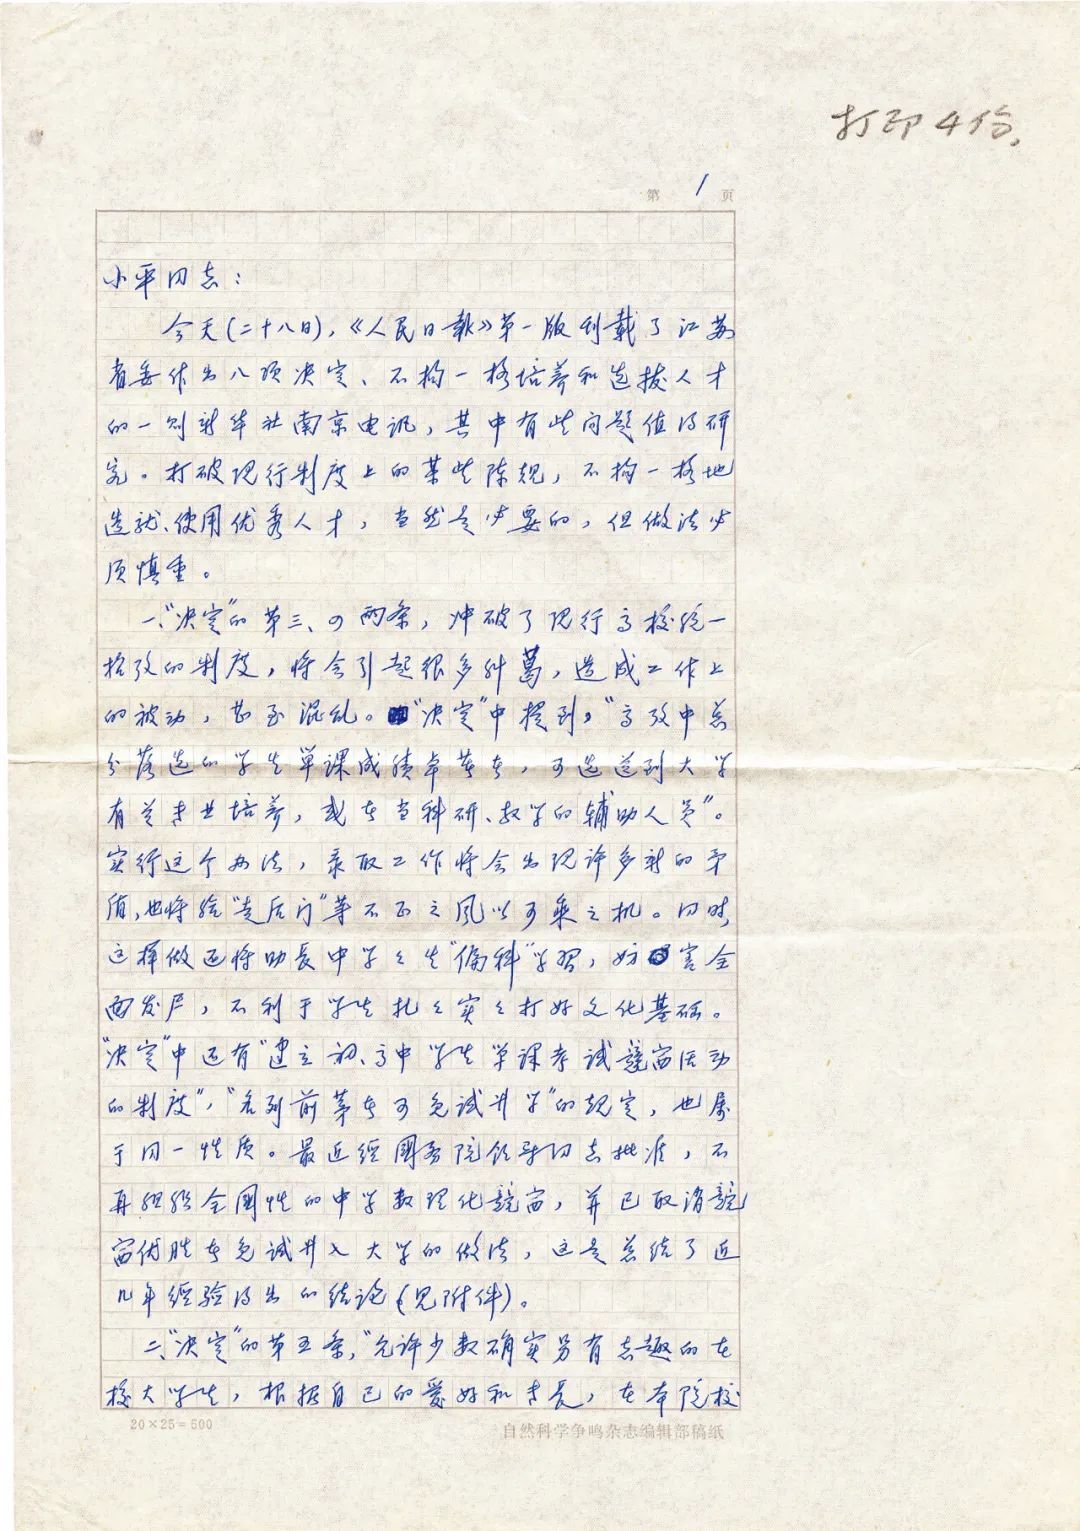 打印4份。
第 1 页
小平同志：
今天(二十八日)，《人民日报》第一版刊载了江苏
省委作出八项决定、不拘一格培养和选拔人才
的一则新华社南京电讯，其中有些问题值得研
究。打破现行制度上的某些陈规，不拘一格地
造就、使用优秀人才，当然是必要的，但做法必
须慎重。
一、“决定”的第三、四两条，冲破了现行高校统一
招考的制度，将会引起很多纠葛，造成工作上
的被动，甚至混乱。“决定”中提到，“高考中总
分落选的学生单课成绩卓著者，可选送到大学
有关专业培养，或者当科研、教学的辅助人员”。
实行这个办法，录取工作将会出现许多新的矛
盾，也将给“走后门”等不正之风以可乘之机。同时，
这样做还将助长中学学生“偏科”学习，妨害全
面发展，不利于学生扎扎实实打好文化基础。
“决定”中还有“建立初、高中学生单课考试競赛活动
的制度”，“名列前茅者可免试升学”的规定，也属
于同一性质。最近經國务院领导同志批准，不
再组织全國性的中学数理化競赛，并已取消競
赛优胜者免试升入大学的做法，这是总结了近
几年經验得出的结论(见附件)。
二、“决定”的第五条，“允许少数确实另有志趣的在
校大学生，根据自己的爱好和专长，在本院校
20×25=500
自然科学争鸣杂志编辑部稿纸